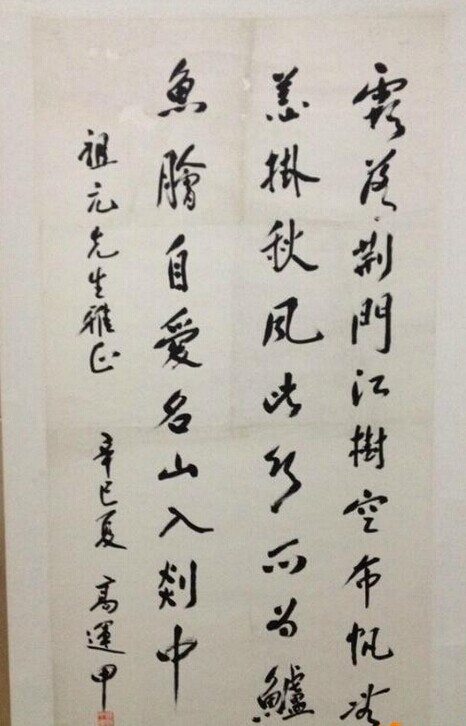 霜落荆門江樹空布帆無
恙掛秋風此行不為鱸
魚膾自愛名山入剡中
祖元先生雅正 辛巳夏 高運甲